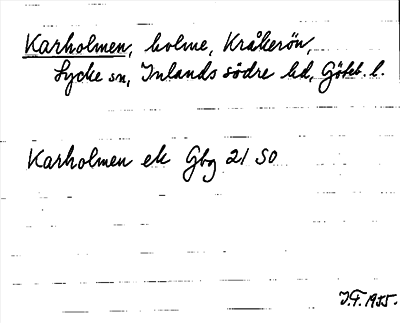 Karholmen, holme, Kråkerön,
Lycke sn, Inlands södre hd, Göteb. l.
Karholmen ek Gbg 21 SO
J.F. 1955.